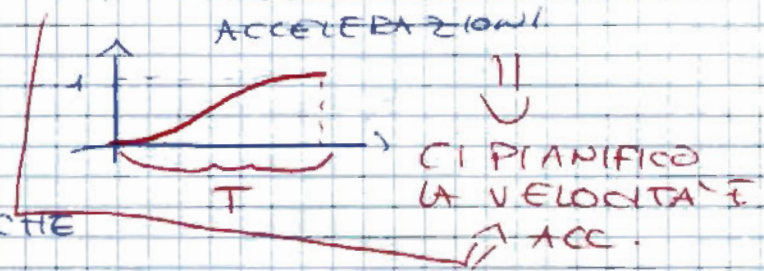 ACCELERAZIONI.
1
T
CI PIANIFICO
LA VELOCITA' E
CHE
ACC.